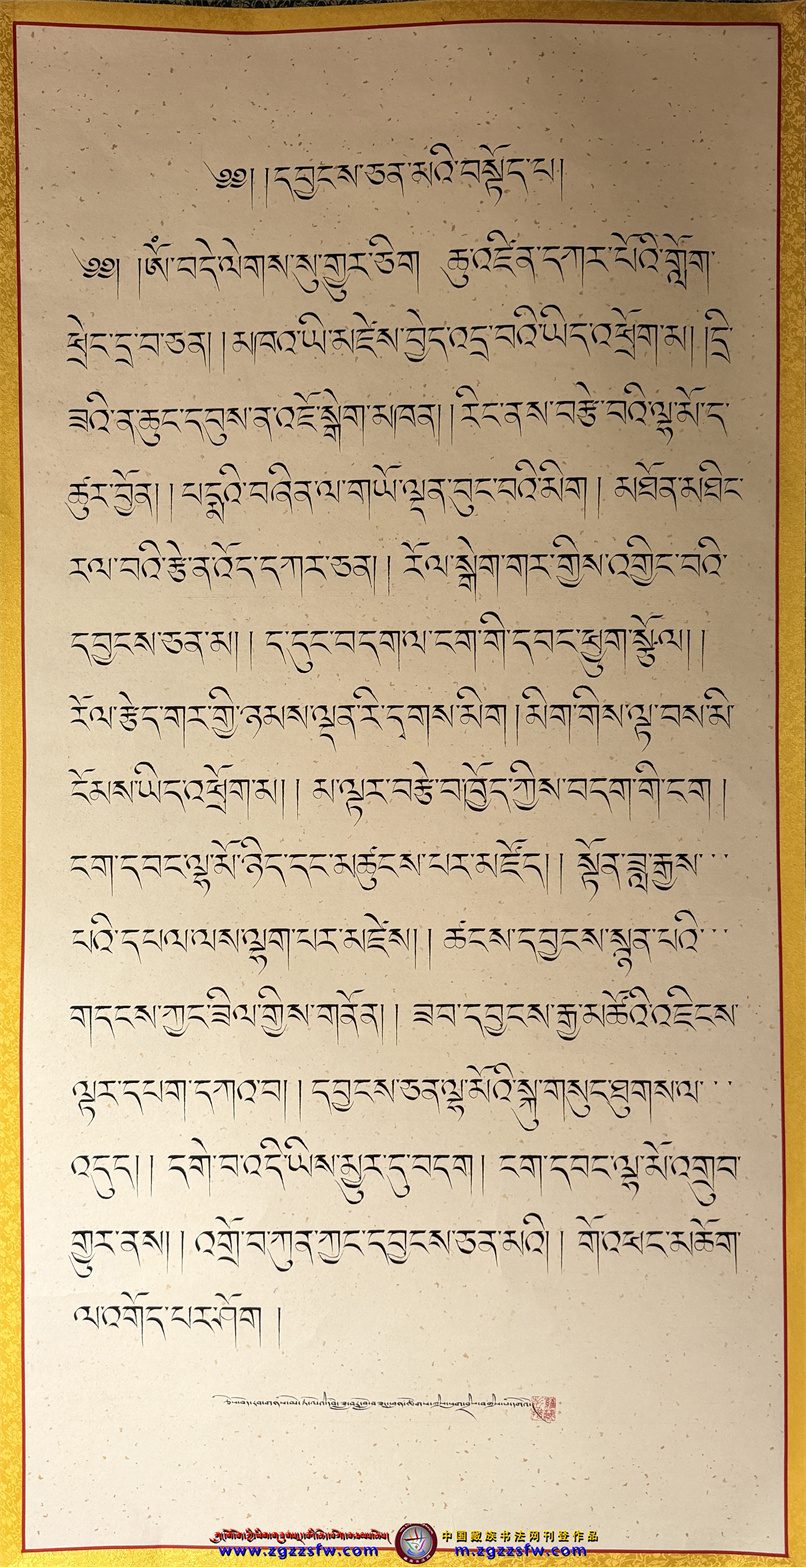 ༄༅། །དབྱངས་ཅན་མའི་བསྟོད་པ།
༄༅། །ༀ་བདེ་ལེགས་སུ་གྱུར་ཅིག ཆུ་འཛིན་དཀར་པོའི་གློག་
ཕྲེང་དྲ་བ་ཅན། །མཁའ་ཡི་མཛེས་བྱེད་འདྲ་བའི་ཡིད་འཕྲོག་མ། །དྲི་
ཟའི་ན་ཆུང་དབུས་ན་འཇོ་སྒེག་མཁན། །རིང་ནས་བརྩེ་བའི་ལྷ་མོ་ད་
ཚུར་བྱོན། །པདྨའི་བཞིན་ལ་གཡོ་ལྡན་བུང་བའི་མིག །མཐོན་མཐིང་
རལ་བའི་རྩེ་ན་འོད་དཀར་ཅན། །རོལ་སྒེག་གར་གྱིས་འགྱིང་བའི་
དབྱངས་ཅན་མ། །ད་དུང་བདག་ལ་ངག་གི་དབང་ཕྱུག་སྩོལ། །
རོལ་རྩེད་གར་གྱི་ཉམས་ལྡན་རི་དྭགས་མིག །མིག་གིས་ལྟ་བས་མི་
ངོམས་ཡིད་འཕྲོག་མ། །མ་ལྟར་བརྩེ་བ་ཁྱོད་ཀྱིས་བདག་གི་ངག །
ངག་དབང་ལྷ་མོ་ཉིད་དང་མཚུངས་པར་མཛོད། །སྟོན་ཟླ་རྒྱས་
པའི་དཔལ་ལས་ལྷག་པར་མཛེས། །ཚངས་དབྱངས་སྙན་པའི་
གདངས་ཀྱང་ཟིལ་གྱིས་གནོན། །ཟབ་དབྱངས་རྒྱ་མཚོའི་འཇིངས་
ལྟར་དཔག་དཀའ་བ། །དབྱངས་ཅན་ལྷ་མོའི་སྐུ་གསུང་ཐུགས་ལ་
འདུད། །དགེ་བ་འདི་ཡིས་མྱུར་དུ་བདག །ངག་དབང་ལྷ་མོ་འགྲུབ་
གྱུར་ནས། །འགྲོ་བ་ཀུན་ཀྱང་དབྱངས་ཅན་མའི། །གོ་འཕང་མཆོག་
ལ་འགོད་པར་ཤོག །
中国藏族书法网刊登作品
www.zgzzsfw.com m.zgzzsfw.com